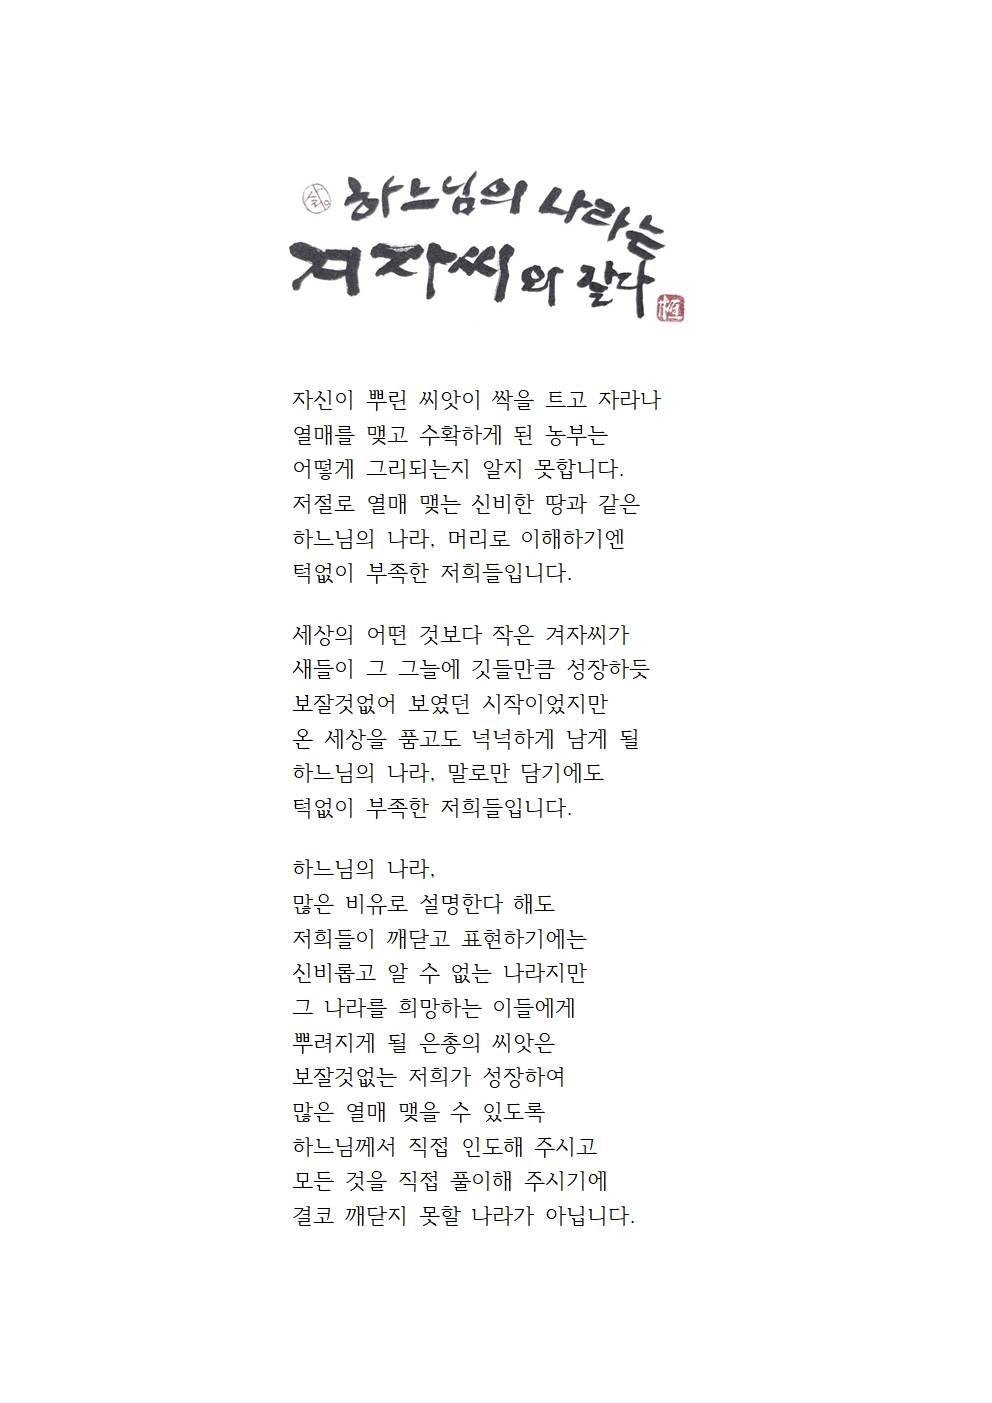 하느님의 나라는
겨자씨와 같다
자신이 뿌린 씨앗이 싹을 트고 자라나
열매를 맺고 수확하게 된 농부는
어떻게 그리되는지 알지 못합니다.
저절로 열매 맺는 신비한 땅과 같은
하느님의 나라, 머리로 이해하기엔
턱없이 부족한 저희들입니다.
세상의 어떤 것보다 작은 겨자씨가
새들이 그 그늘에 깃들만큼 성장하듯
보잘것없어 보였던 시작이었지만
온 세상을 품고도 넉넉하게 남게 될
하느님의 나라, 말로만 담기에도
턱없이 부족한 저희들입니다.
하느님의 나라,
많은 비유로 설명한다 해도
저희들이 깨닫고 표현하기에는
신비롭고 알 수 없는 나라지만
그 나라를 희망하는 이들에게
뿌려지게 될 은총의 씨앗은
보잘것없는 저희가 성장하여
많은 열매 맺을 수 있도록
하느님께서 직접 인도해 주시고
모든 것을 직접 풀이해 주시기에
결코 깨닫지 못할 나라가 아닙니다.